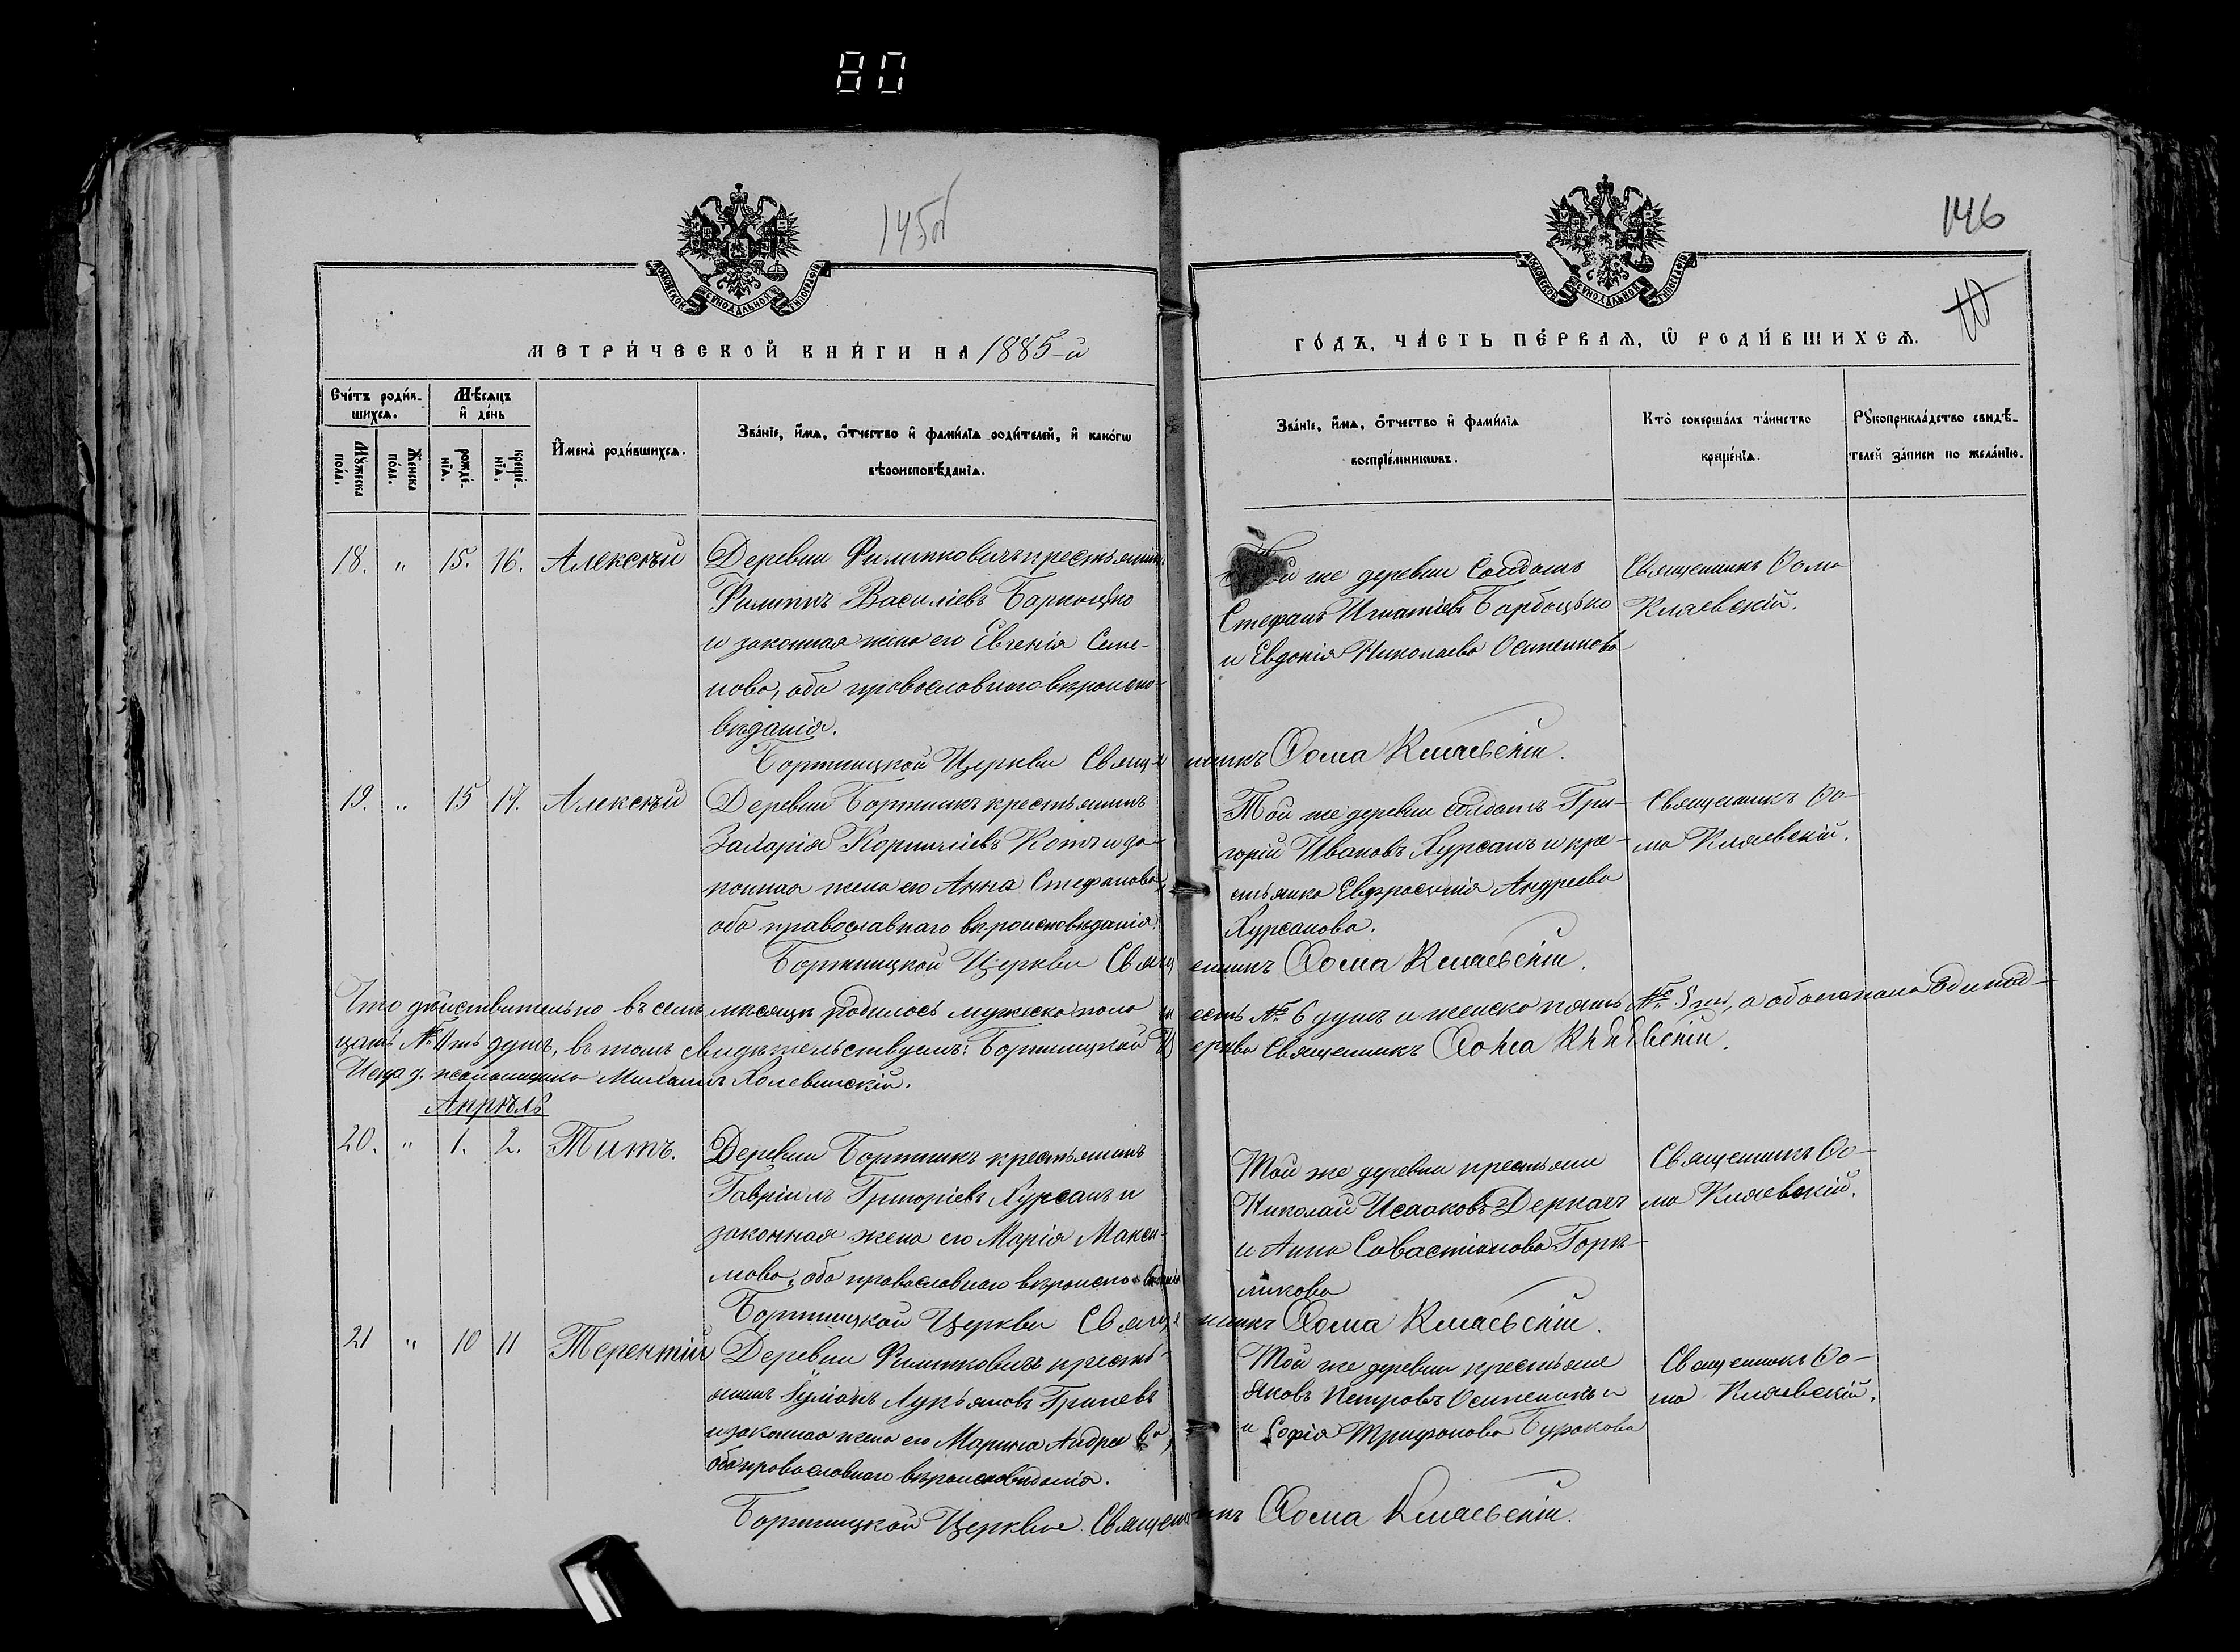 80
145об
146
МОСКОВСКОЙ СѴНОДАЛЬНОЙ ТИПОГРАФІИ
МОСКОВСКОЙ СѴНОДАЛЬНОЙ ТИПОГРАФІИ
МЕТРИ́ЧЕСКОЙ КНИ́ГИ НА 1885-й
ГО́ДЪ, ЧА́СТЬ ПЕ́РВАѦ, Ѡ҆ РОДИ́ВШИХСѦ.
10
Сче́тъ роди́в-
шихсѧ.
Мѣ́сѧцъ
и҆ де́нь
Мꙋ́жеска по́ла.
Же́нска по́ла.
рожде́-нїѧ.
креще́-нїѧ.
И҆мена̀ роди́вшихсѧ.
Зва́нїе, и҆́мѧ, ѻ҆́тчество и҆ фами́лїѧ роди́телей, и҆ како́гѡ
вѣроисповѣ́данїѧ.
Зва́нїе, и҆́мѧ, ѻ҆́тчество и҆ фами́лїѧ
воспрїе́мникѡвъ.
Кто̀ соверша́лъ та́инство
креще́нїѧ.
Рꙋкоприкла́дство свидѣ́-
телей за́писи по жела́нїю.
18. " 15. 16. Алексѣй
Деревни Филипковичъ крестьянинъ
Филиппъ Василіевъ
и законная жена его Евгенія Семе-
нова, оба православнаго вѣроиспо-
вѣданія.
же деревни Солдатъ
Стефанъ Игнатіевъ
и Евдокія Николаева Осипенкова
Священникъ Ѳома
Кляевскій.
Бортницкой Церкви Священникъ Ѳома Кляевскій.
19. " 15 17. Алексѣй
Деревни Бортникъ крестьянинъ
Захарія Корниліевъ Котъ и за-
конная жена его Анна Стефанова,
оба православнаго вѣроисповѣданія.
Той же деревни солдатъ Гри-
горій Ивановъ Хурсанъ и кре-
стьянка Евфросинія Андреева
Хурсанова.
Священникъ Ѳо-
ма Кляевскій.
Бортницкой Церкви Священникъ Ѳома Кляевскій.
Что дѣйствительно въ семъ мѣсяцѣ родилось мужеска пола шесть № 6 душъ и женска пять № 5ть, а обоего пола одинад-
цать № 11ть душъ, въ томъ свидѣтельствуемъ: Бортницкой Церкви Священникъ Ѳома Кляевскій.
И. д. псаломщика Михаилъ
Апрѣль
20. " 1. 2. Титъ.
Деревни Бортникъ крестьянинъ
Гавріилъ Григоріевъ Хурсанъ и
законная жена его Марія Макси-
мова, оба православнаго вѣроисповѣданія
Той же деревни крестьяне
Николай Исааковъ Деркачъ
и Анна Савастіанова
Священникъ Ѳо-
ма Кляевскій.
Бортницкой Церкви Священникъ Ѳома Кляевскій.
21 " 10 11 Терентій
Деревни Филипковичъ кресть-
янинъ Лукьяновъ Гриневъ
и законная жена его Марина Андреева,
оба православнаго вѣроисповѣданія.
Той же деревни крестьяне
Яковъ Петровъ Осипенко и
и Софія Трифонова Буракова
Священникъ Ѳо-
ма Кляевскій.
Бортницкой Церкви Священникъ Ѳома Кляевскій.